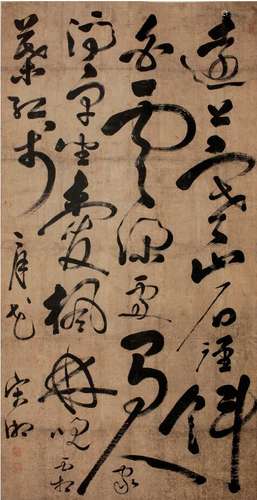 遠上寒山石徑斜
白雲深處有人家
停車坐愛楓林晚霜
葉紅於二月花 宋湘